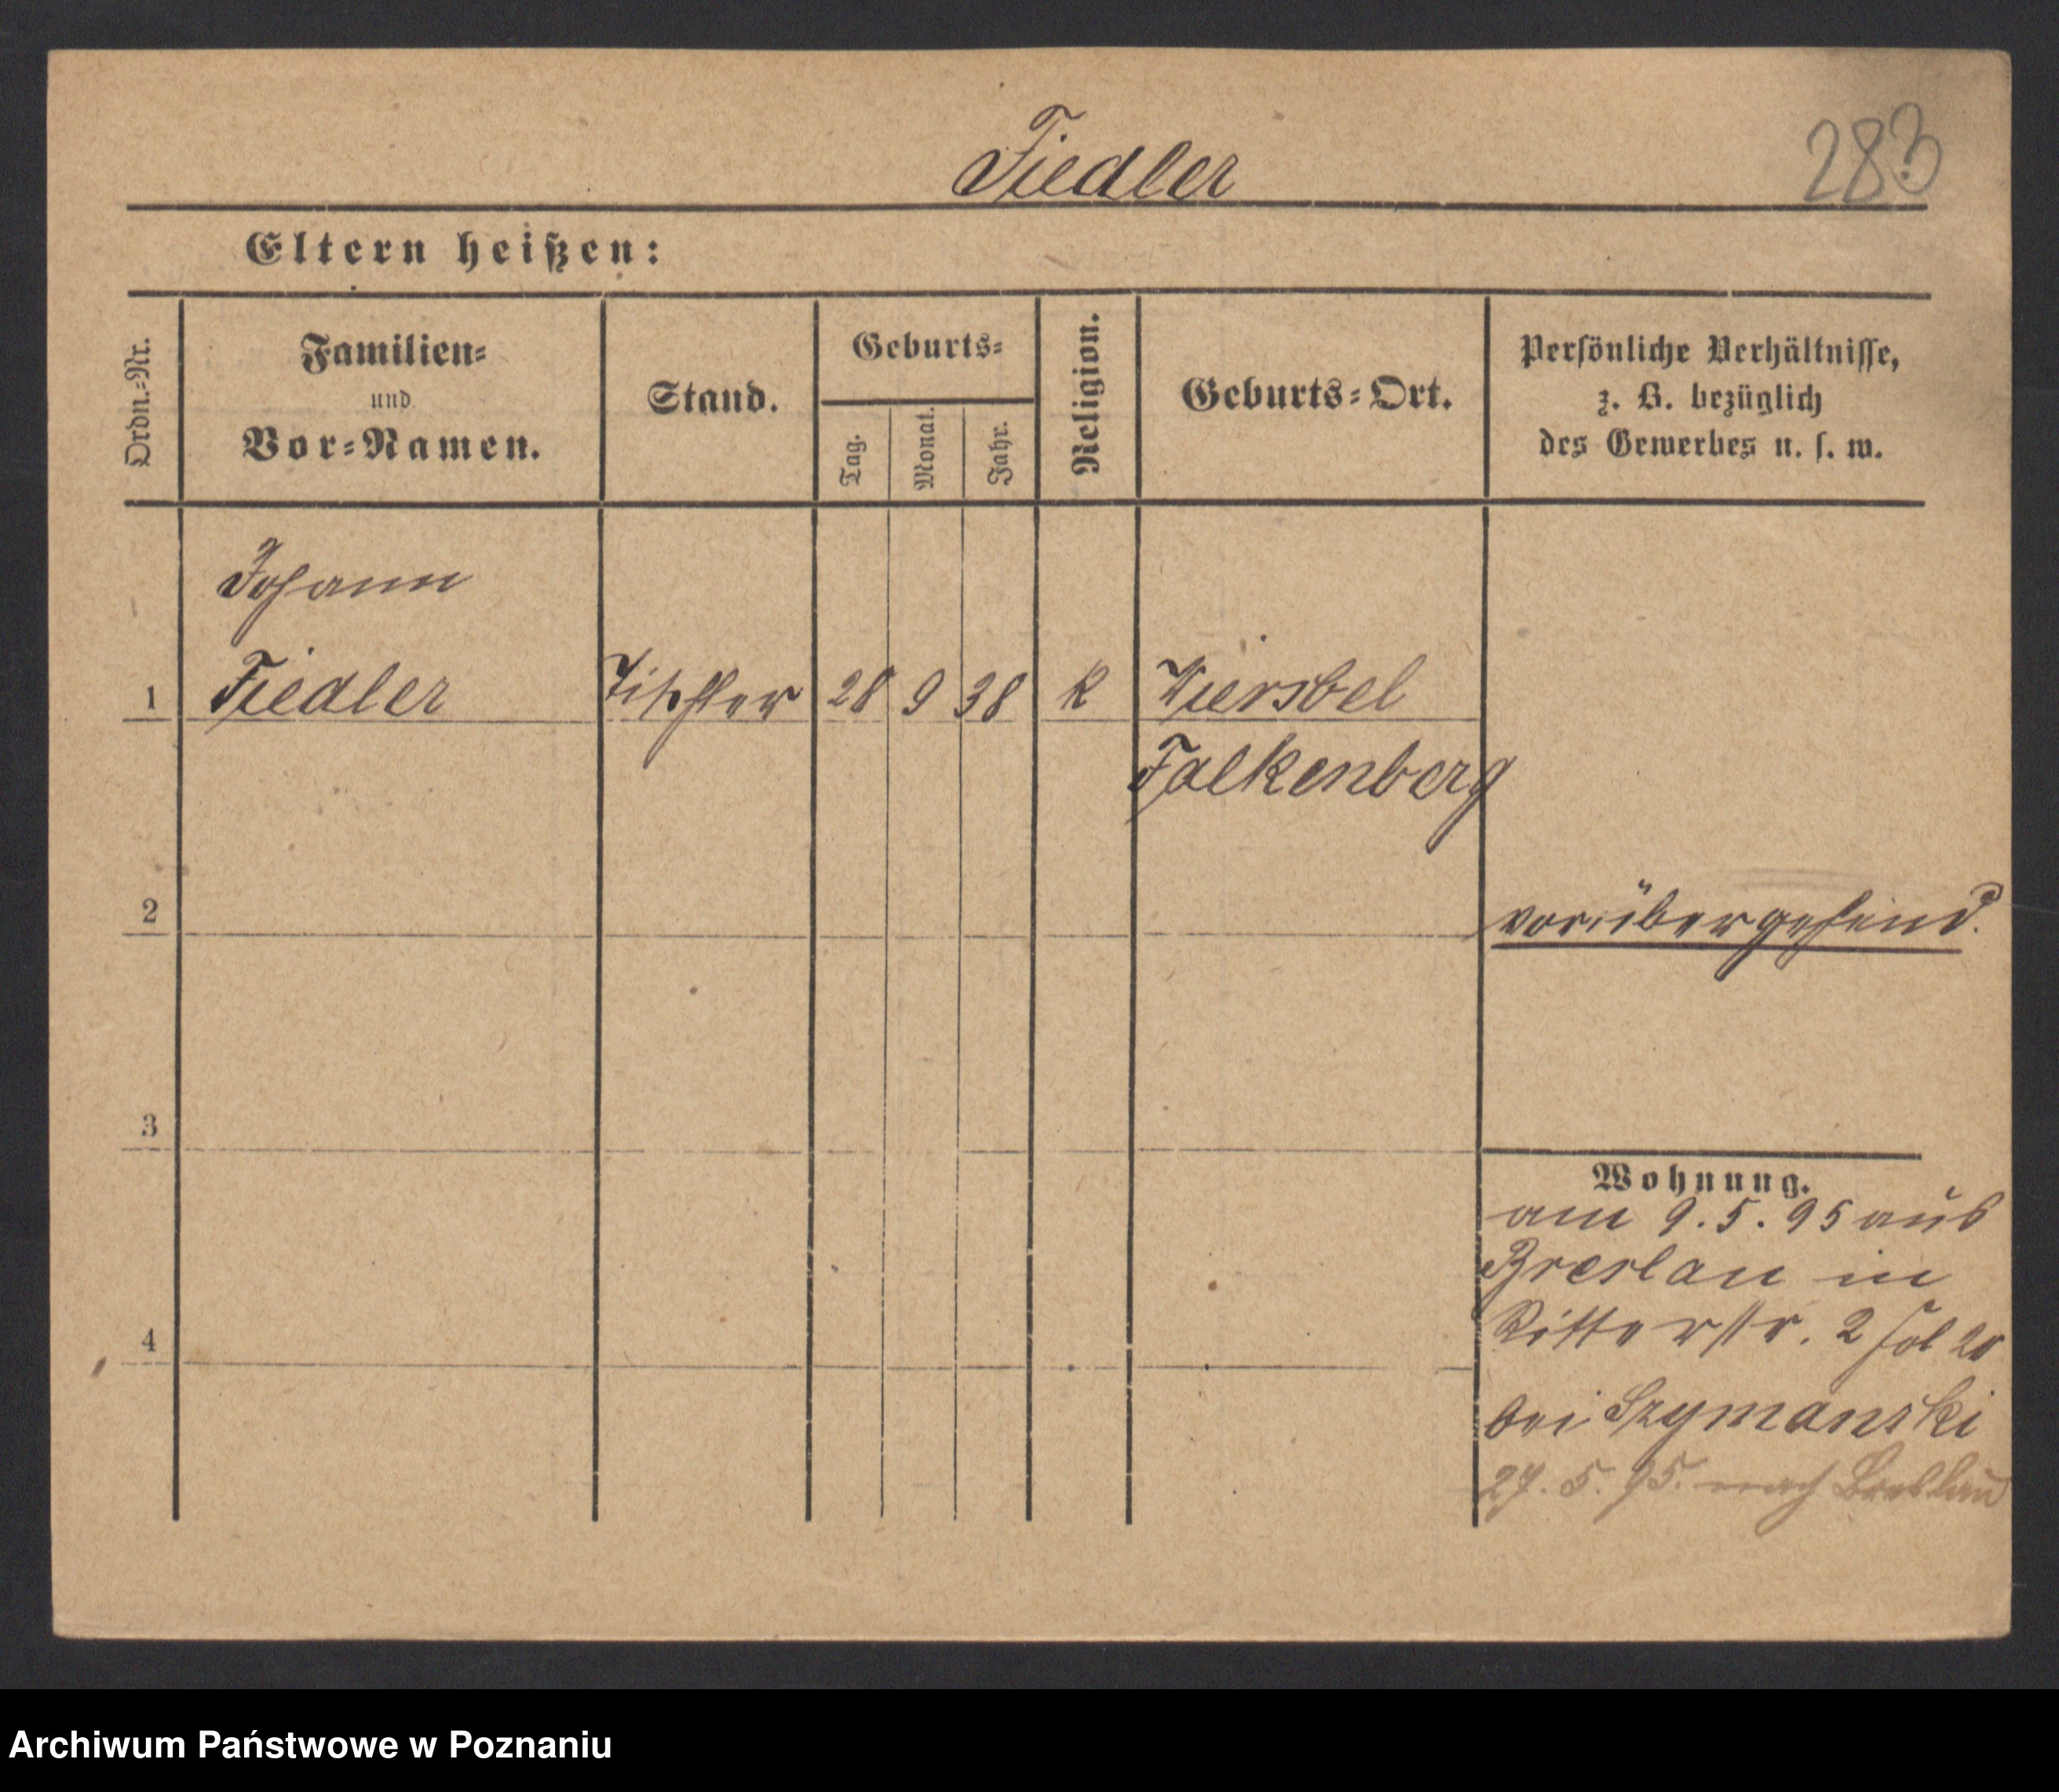 Fiedler
283
Eltern heißen:
Ordn.-Nr.
Familien-
und
Vor-Namen.
Stand.
Geburts-
Tag.
Monat.
Jahr.
Religion.
Geburts-Ort.
Persönliche Verhältnisse,
z. B. bezüglich
des Gewerbes u. s. w.
Johann
1 Fiedler Tischler 28 9 38 K Wiersbel
Falkenberg
2 vorübergehend.
3
Wohnung.
am 9.5.95 aus
Breslau in
Ritterstr. 2
4
bei Szymanski
27.5.95. nach Breslau
Archiwum Państwowe w Poznaniu